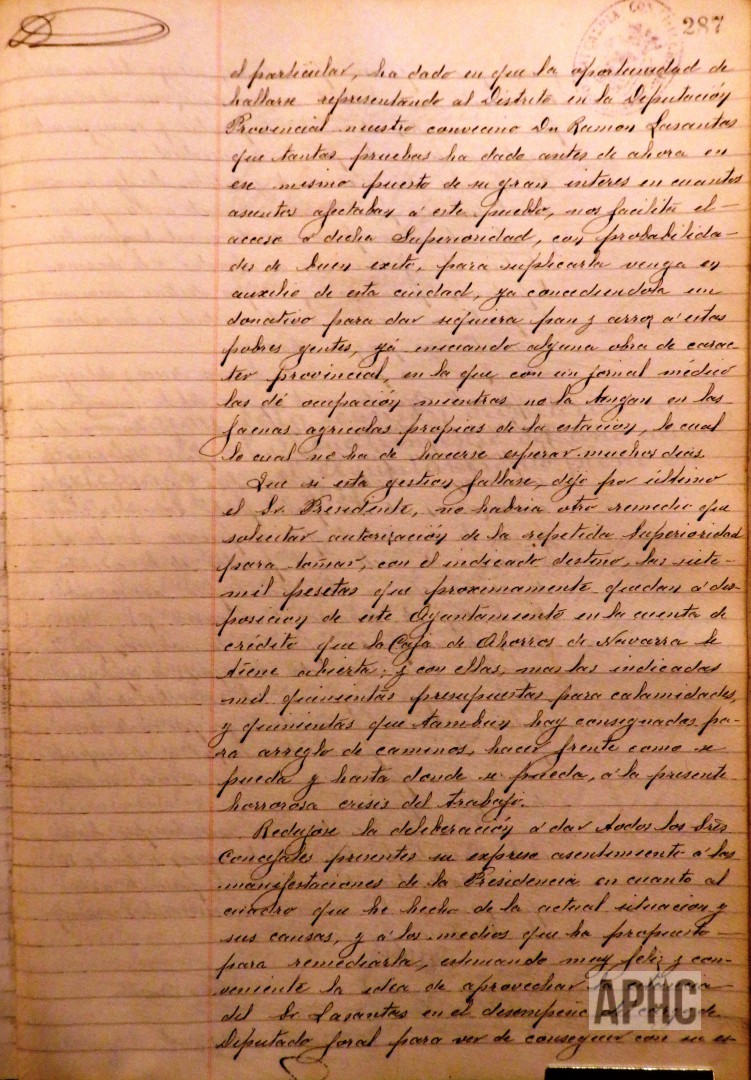 287
el particular, ha dado en que la oportunidad de
hallarse representando al Distrito en la Diputación
Provincial nuestro convecino Dn Ramon Lasantas
que tantas pruebas ha dado antes de ahora en
ese mismo puesto de su gran interes en cuantos
asuntos afectaban á este pueblo, nos facilita el
acceso á dicha Superioridad, con probabilida-
des de buen exito, para suplicarla venga en
auxilio de esta ciudad, ya concediendola un
donativo para dar siquiera pan y arroz á estas
pobres gentes, yá iniciando alguna obra de carac-
ter provincial, en la que con un jornal módico
las dé ocupación mientras no la tengan en las
faenas agricolas propias de la estacion, lo cual
lo cual no ha de hacerse esperar muchos dias.
Que si esta gestion fallase, dijo por último
el Sr. Presidente, no habria otro remedio que
solicitar autorización de la repetida Superioridad
para tomar, con el indicado destino, las siete
mil pesetas que proximamente quedan á dis-
posicion de este Ayuntamiento en la cuenta de
crédito que la Caja de Ahorros de Navarra le
tiene abierta; y con ellas, mas las indicadas
mil quinientas presupuestas para calamidades,
y quinientas que tambien hay consignadas pa-
ra arreglo de caminos, hacer frente como se
pueda y hasta donde se pueda, á la presente
horrorosa crisis del trabajo.
Redujose la deliberación á dar todos los Sres
Concejales presentes su expreso asentimiento á las
manifestaciones de la Presidencia en cuanto al
cuadro que ha hecho de la actual situacion y
sus causas, y á los medios que ha propuesto
para remediarla, estimando muy feliz y con-
veniente la idea de aprovechar
del Sr Lasantas en el desempeño del cargo de
Diputado foral para ver de conseguir con su es-
APHC